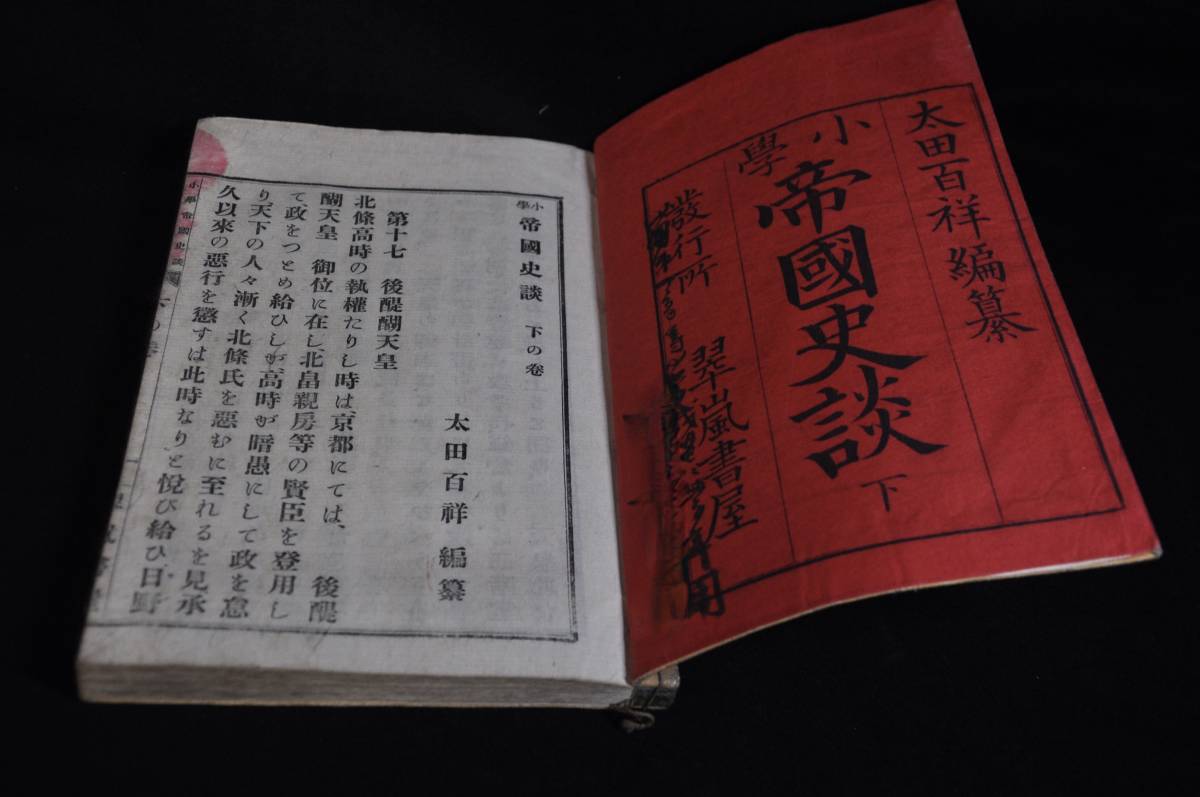 太田百祥編纂
小學
帝國史談
下
發行所
翠嵐書屋
用
小學帝國史談 下の卷
太田百祥 編纂
第十七 後醍醐天皇
北條高時の執權たりし時は、京都にては、後醍
醐天皇 御位に在し北畠親房等の賢臣を登用し
て政をつとめ給ひしが、高時が暗愚にして政を怠
り、天下の人々漸く北條氏を惡むに至れるを見承
久以來の惡行を懲すは此時なりと悦び給ひ日野
小學帝國史談